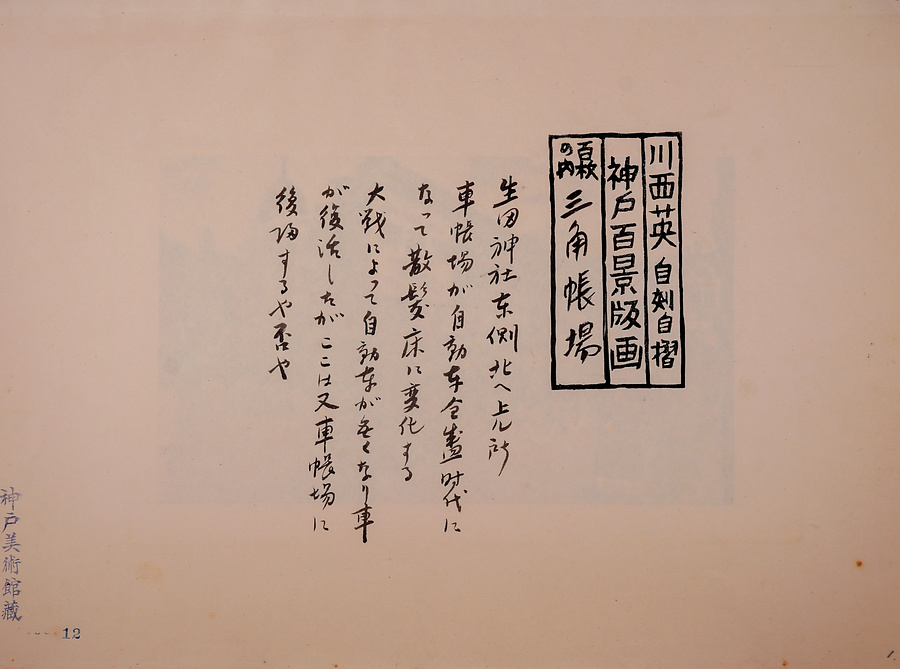 川西英 自刻自摺
神戸百景版画
百枚の内 三角帳場
生田神社东側北へ上ル所
車帳場が自動车全盛时代に
なって散髪床に変化する
大戦によって自動车が无くなり車
が復活したがここは又車帳場に
後帰するや否や
神戸美術館蔵
12